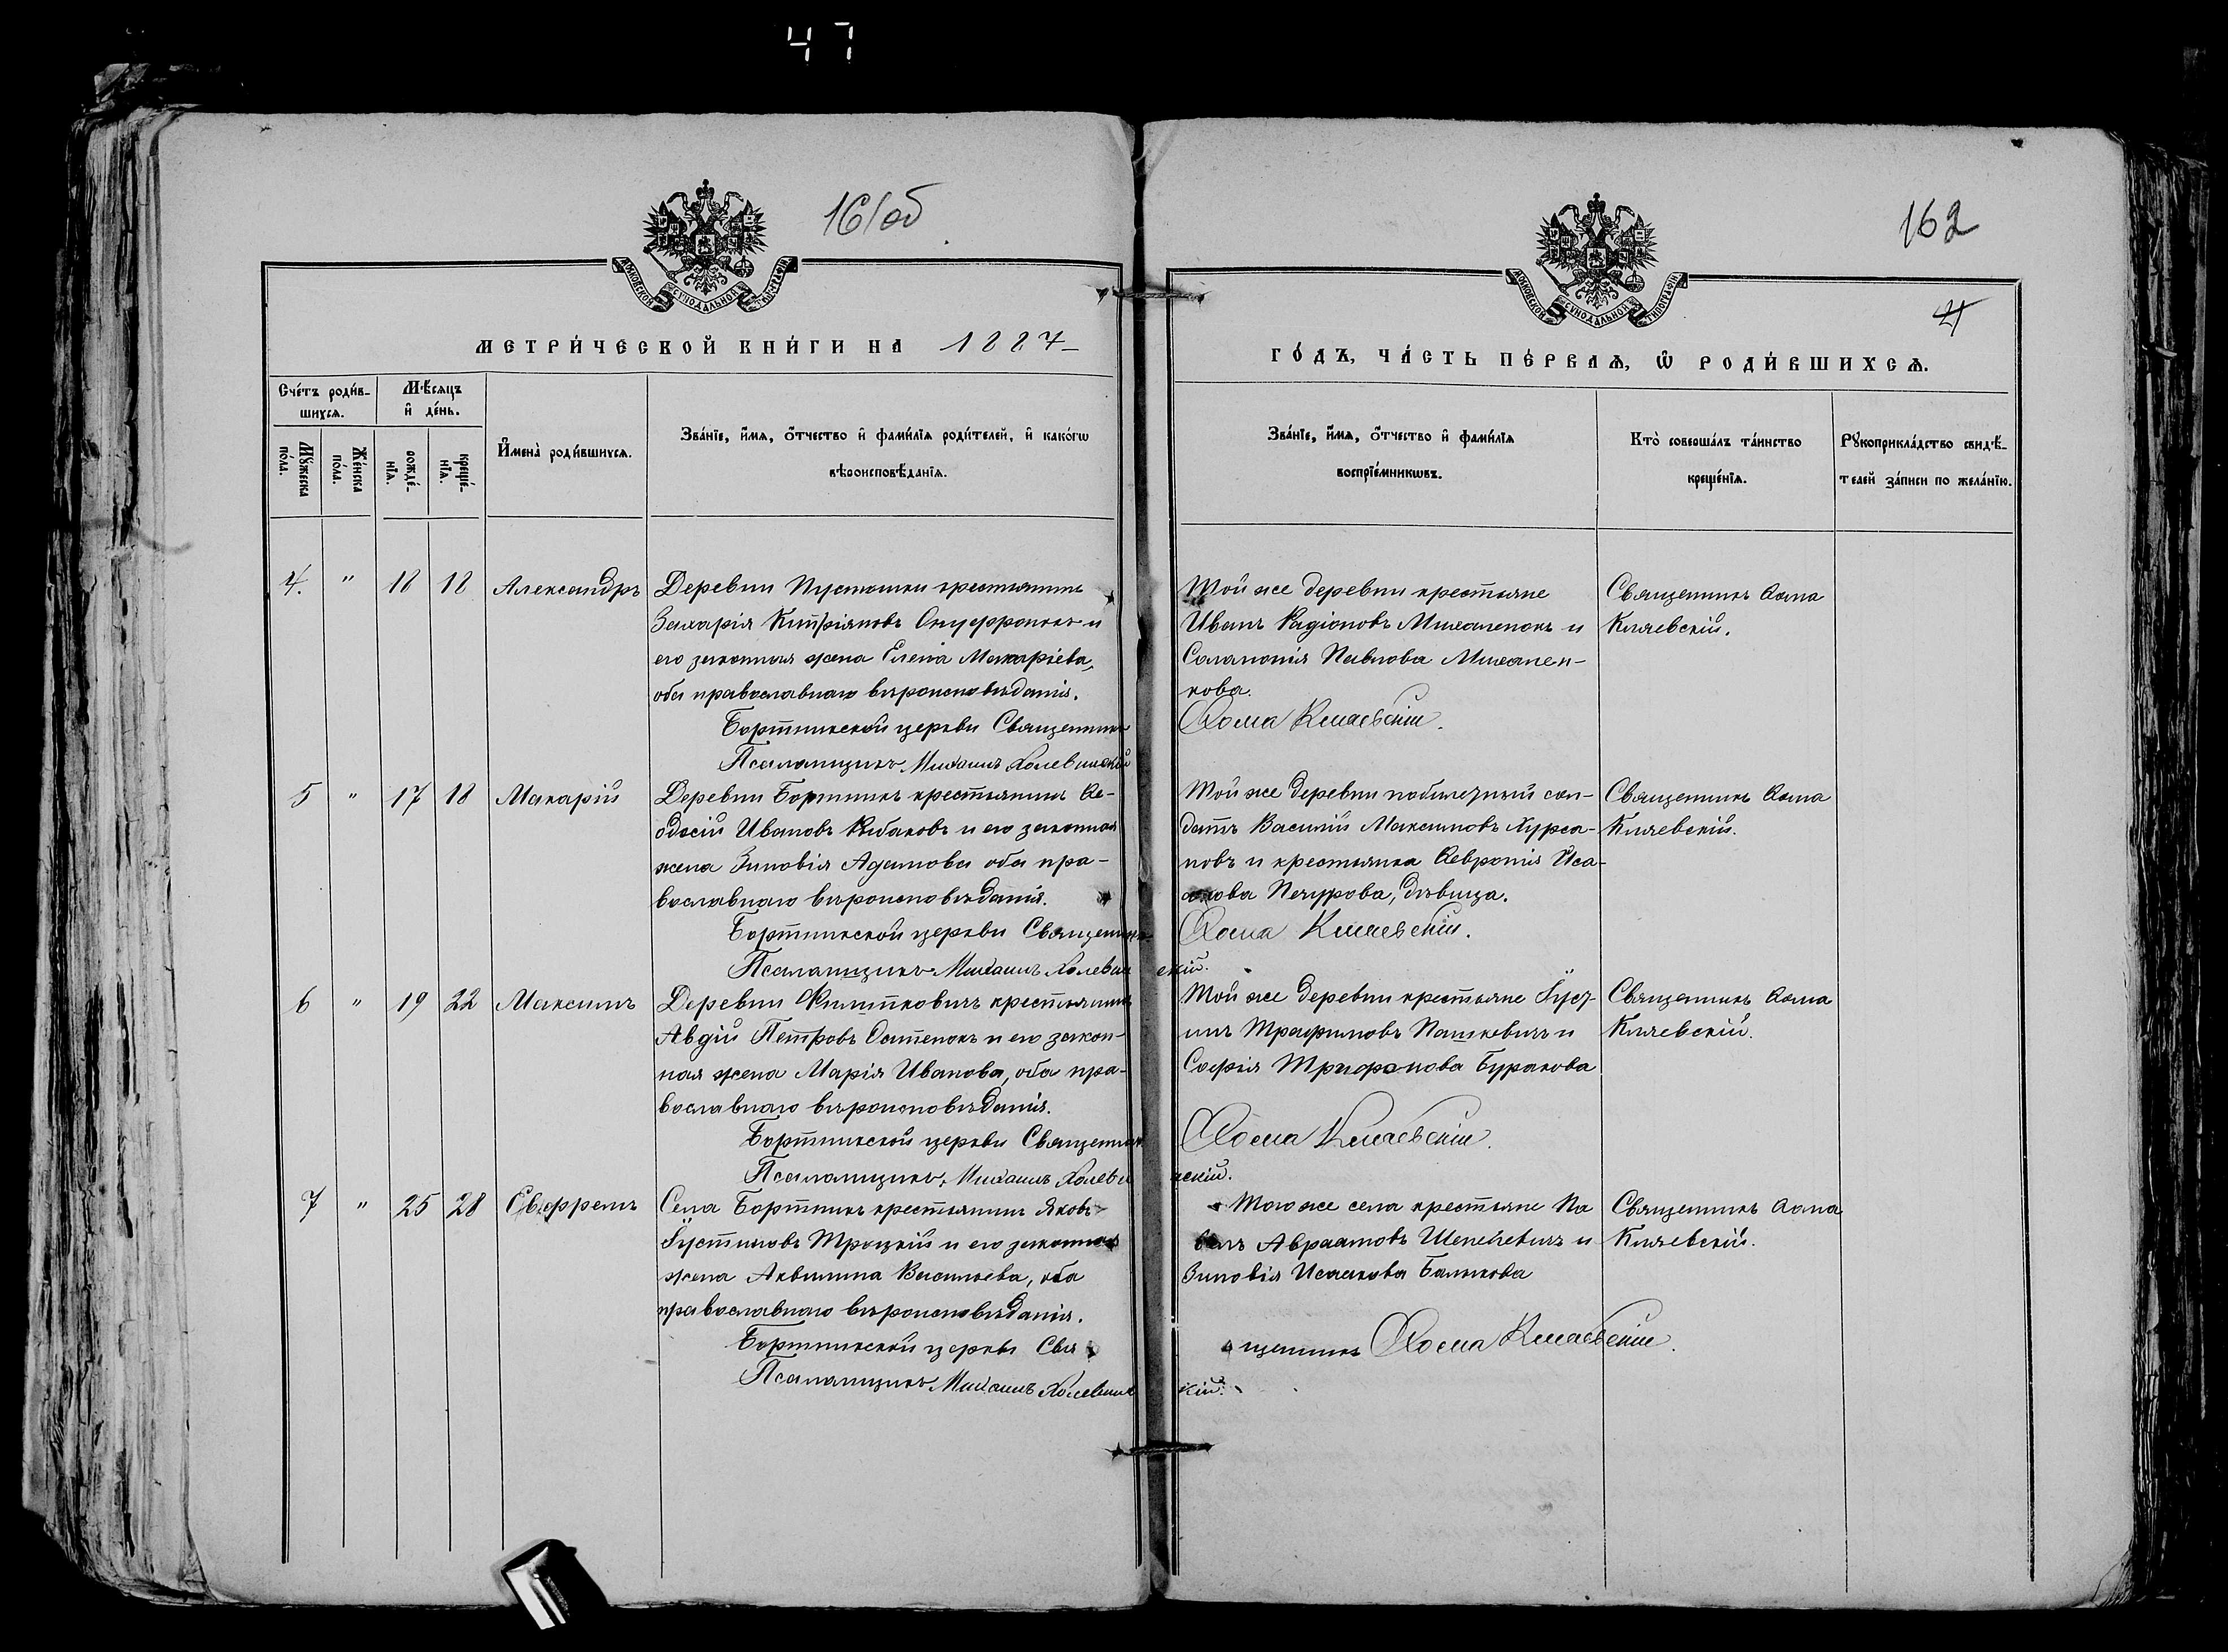 47
161об
162
21
МОСКОВСКОЙ СѴНОДАЛЬНОЙ ТИПОГРАФІИ
МОСКОВСКОЙ СѴНОДАЛЬНОЙ ТИПОГРАФІИ
МЕТРИ́ЧЕСКОЙ КНИ́ГИ НА 1887
ГО́ДЪ, ЧА́СТЬ ПЕ́РВАѦ, Ѡ҆ РОДИ́ВШИХСѦ.
Сче́тъ роди́в-
шихсѧ.
Мꙋ́жеска
по́ла.
Же́нска
по́ла.
Мѣ́сѧцъ
и҆ де́нь.
рожде́-
нїѧ.
креще́-
нїѧ.
И҆мена̀ роди́вшихсѧ.
Зва́нїе, и҆́мѧ, ѻ҆́тчество и҆ фами́лїѧ роди́телей, и҆ како́гѡ
вѣроисповѣ́данїѧ.
Зва́нїе, и҆́мѧ, ѻ҆́тчество и҆ фами́лїѧ
воспрїе́мникѡвъ.
Кто̀ соверша́лъ та́инство
креще́нїѧ.
Рꙋкоприкла́дство свидѣ́-
телей за́писи по жела́нїю.
4. " 18 18 Александръ
Деревни Пустошки крестьянинъ
Захарія Кипріяновъ Онуффронокъ и
его законная жена Елена Макаріева,
оба православнаго вѣроисповѣданія.
Бортникской церкви Священникъ
Псаломщикъ Михаилъ Холевинскій
Той же деревни крестьяне
Иванъ Радіоновъ Михаленокъ и
Саламонія Павлова Михален-
кова.
Ѳома Кляевскій.
Священникъ Ѳома
Кляевскій.
5 " 17 18 Макарій
Деревни Бортникъ крестьянинъ Ѳе-
одосій Ивановъ Рыбаковъ и его законная
жена Зиновія Адамова оба пра-
вославнаго вѣроисповѣданія.
Бортникской церкви Священникъ
Псаломщикъ Михаилъ Холевинскій.
Той же деревни побилетный сол-
датъ Василій Максимовъ Хурса-
новъ и крестьянка Ѳевронія Иса-
акова Печурова, дѣвица.
Ѳома Кляевскій.
Священникъ Ѳома
Кляевскій.
6 " 19 22 Максимъ
Деревни крестьянинъ
Авдій Петровъ Остенокъ и его закон-
ная жена Марія Иванова, оба пра-
вославнаго вѣроисповѣданія.
Бортникской церкви Священникъ
Псаломщикъ Михаилъ Холевинскій.
Той же деревни крестьяне Іуст-
инъ Трафимовъ Пашкевичъ и
Софія Трифонова Буракова
Ѳома Кляевскій.
Священникъ Ѳома
Кляевскій.
7 " 25 28 Евффремъ
Села Бортникъ крестьянинъ Яковъ
Іустиновъ Троцкій и его законная
жена Аквилина Васильева, оба
православнаго вѣроисповѣданія.
Бортникской церкви Священникъ Ѳома Кляевскій.
Псаломщикъ Михаилъ Холевинскій.
Того же села крестьяне Па
велъ Авраамовъ Шепеневичъ и
Зиновія Исаакова Балыкова
Священникъ Ѳома
Кляевскій.